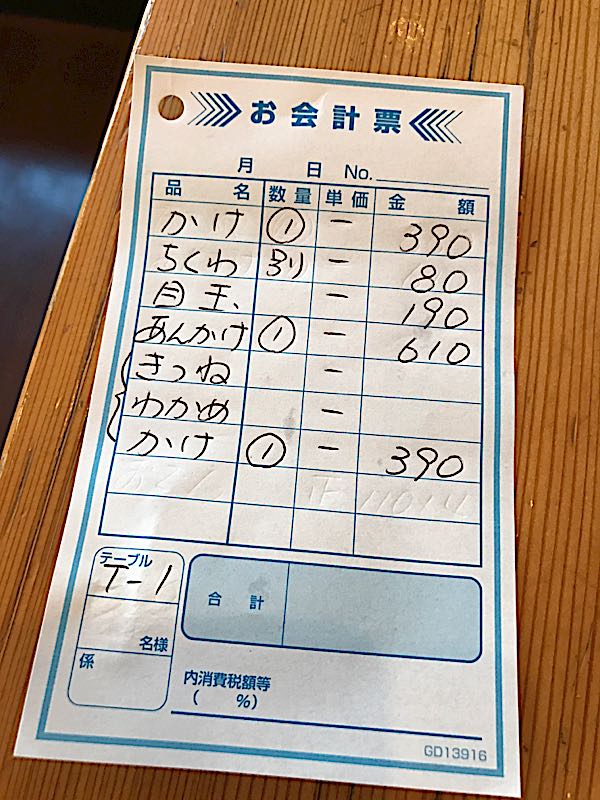 お会計票
月 日 No.
品名 数量 単価 金額
かけ ① ー 390
ちくわ 別 ー 80
目玉、 ー 190
あんかけ ① ー 610
きつね ー
わかめ ー
かけ ① ー 390
テーブル
T-1
名様
係
合計
内消費税額等
( %)
GD13916